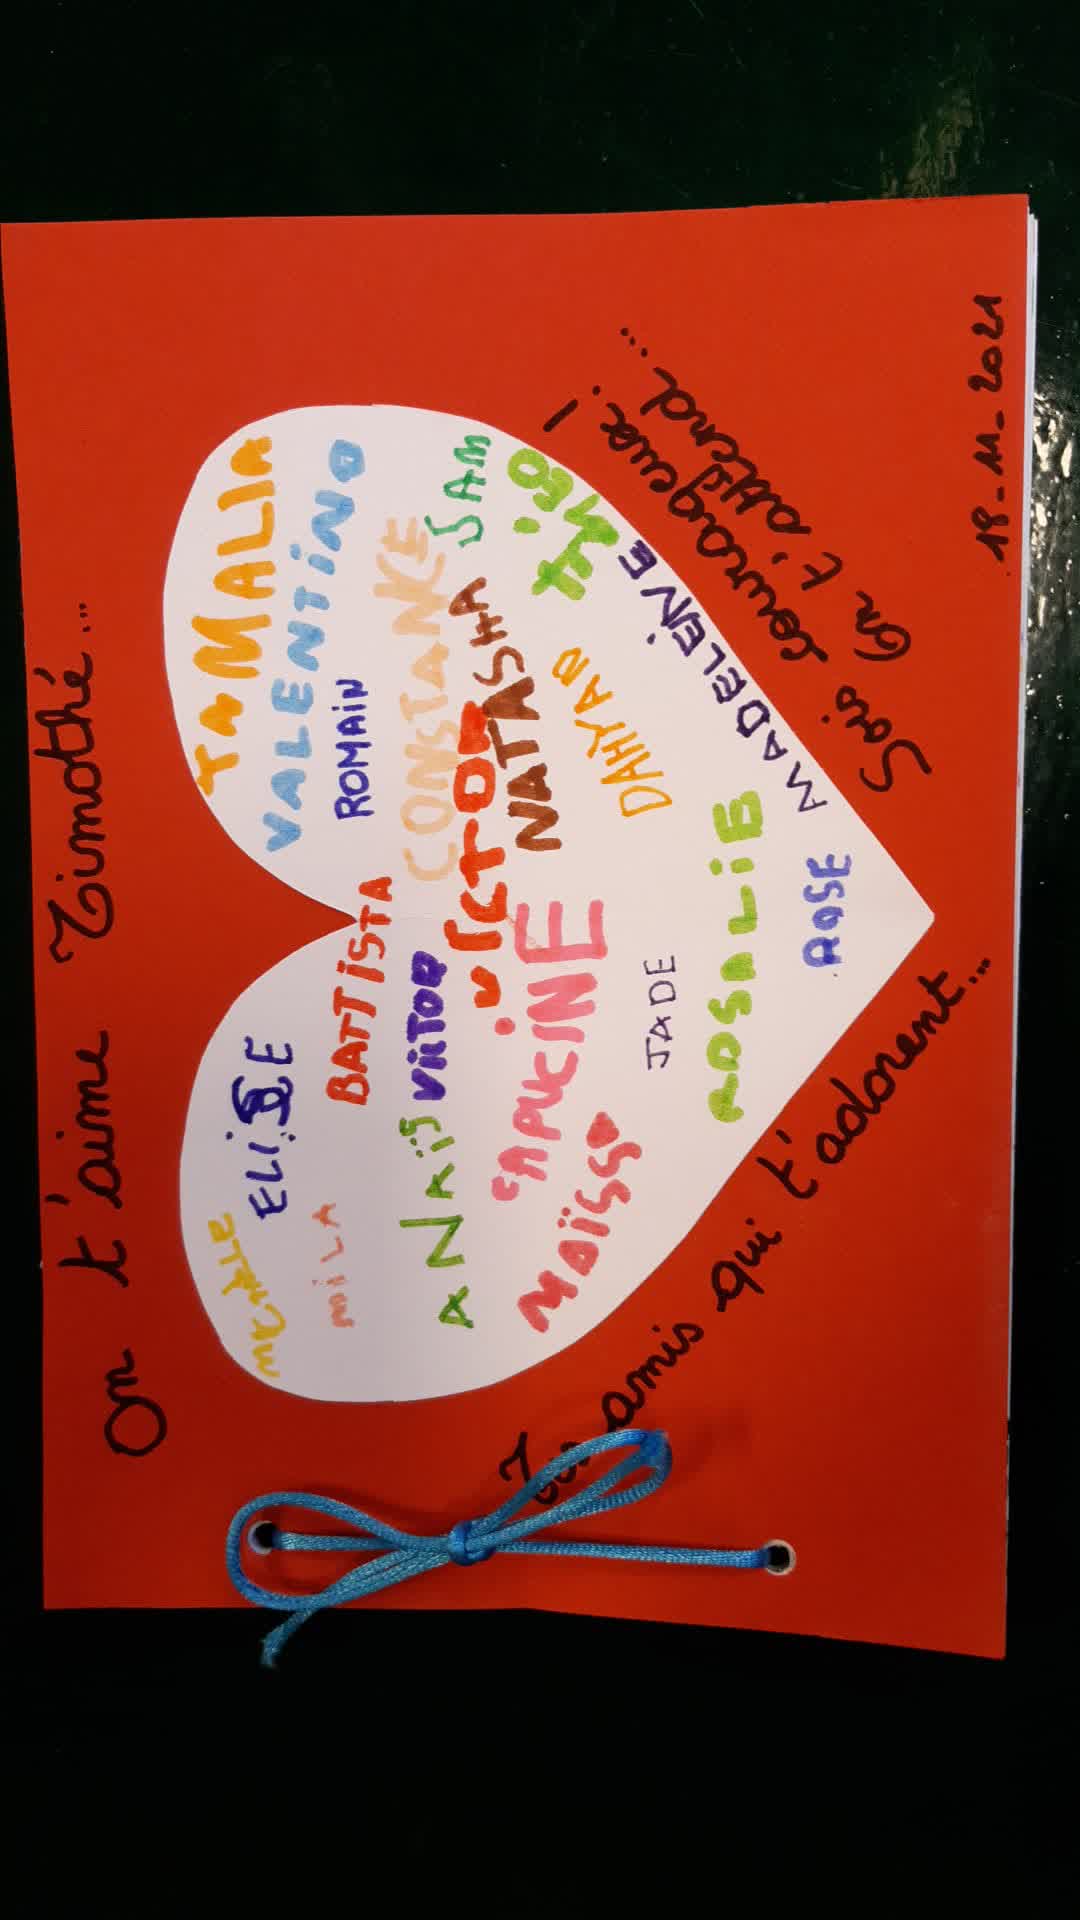 On t'aime Timothé...
ELiSE
MiLA
BATTiSTA
ANAïS
ViiTOR
MAÏSS
CAPUCiNE
JADE
ROSALIE
ROSE
MALIA
VALENTiNO
ROMAIN
CONSTANCE
VICTOR
NATASHA
SAM
TiMÉO
DAHYAN
MADELEiNE
Tes amis qui t'adorent...
Sois courageux !
On t'attend...
18-11-2021